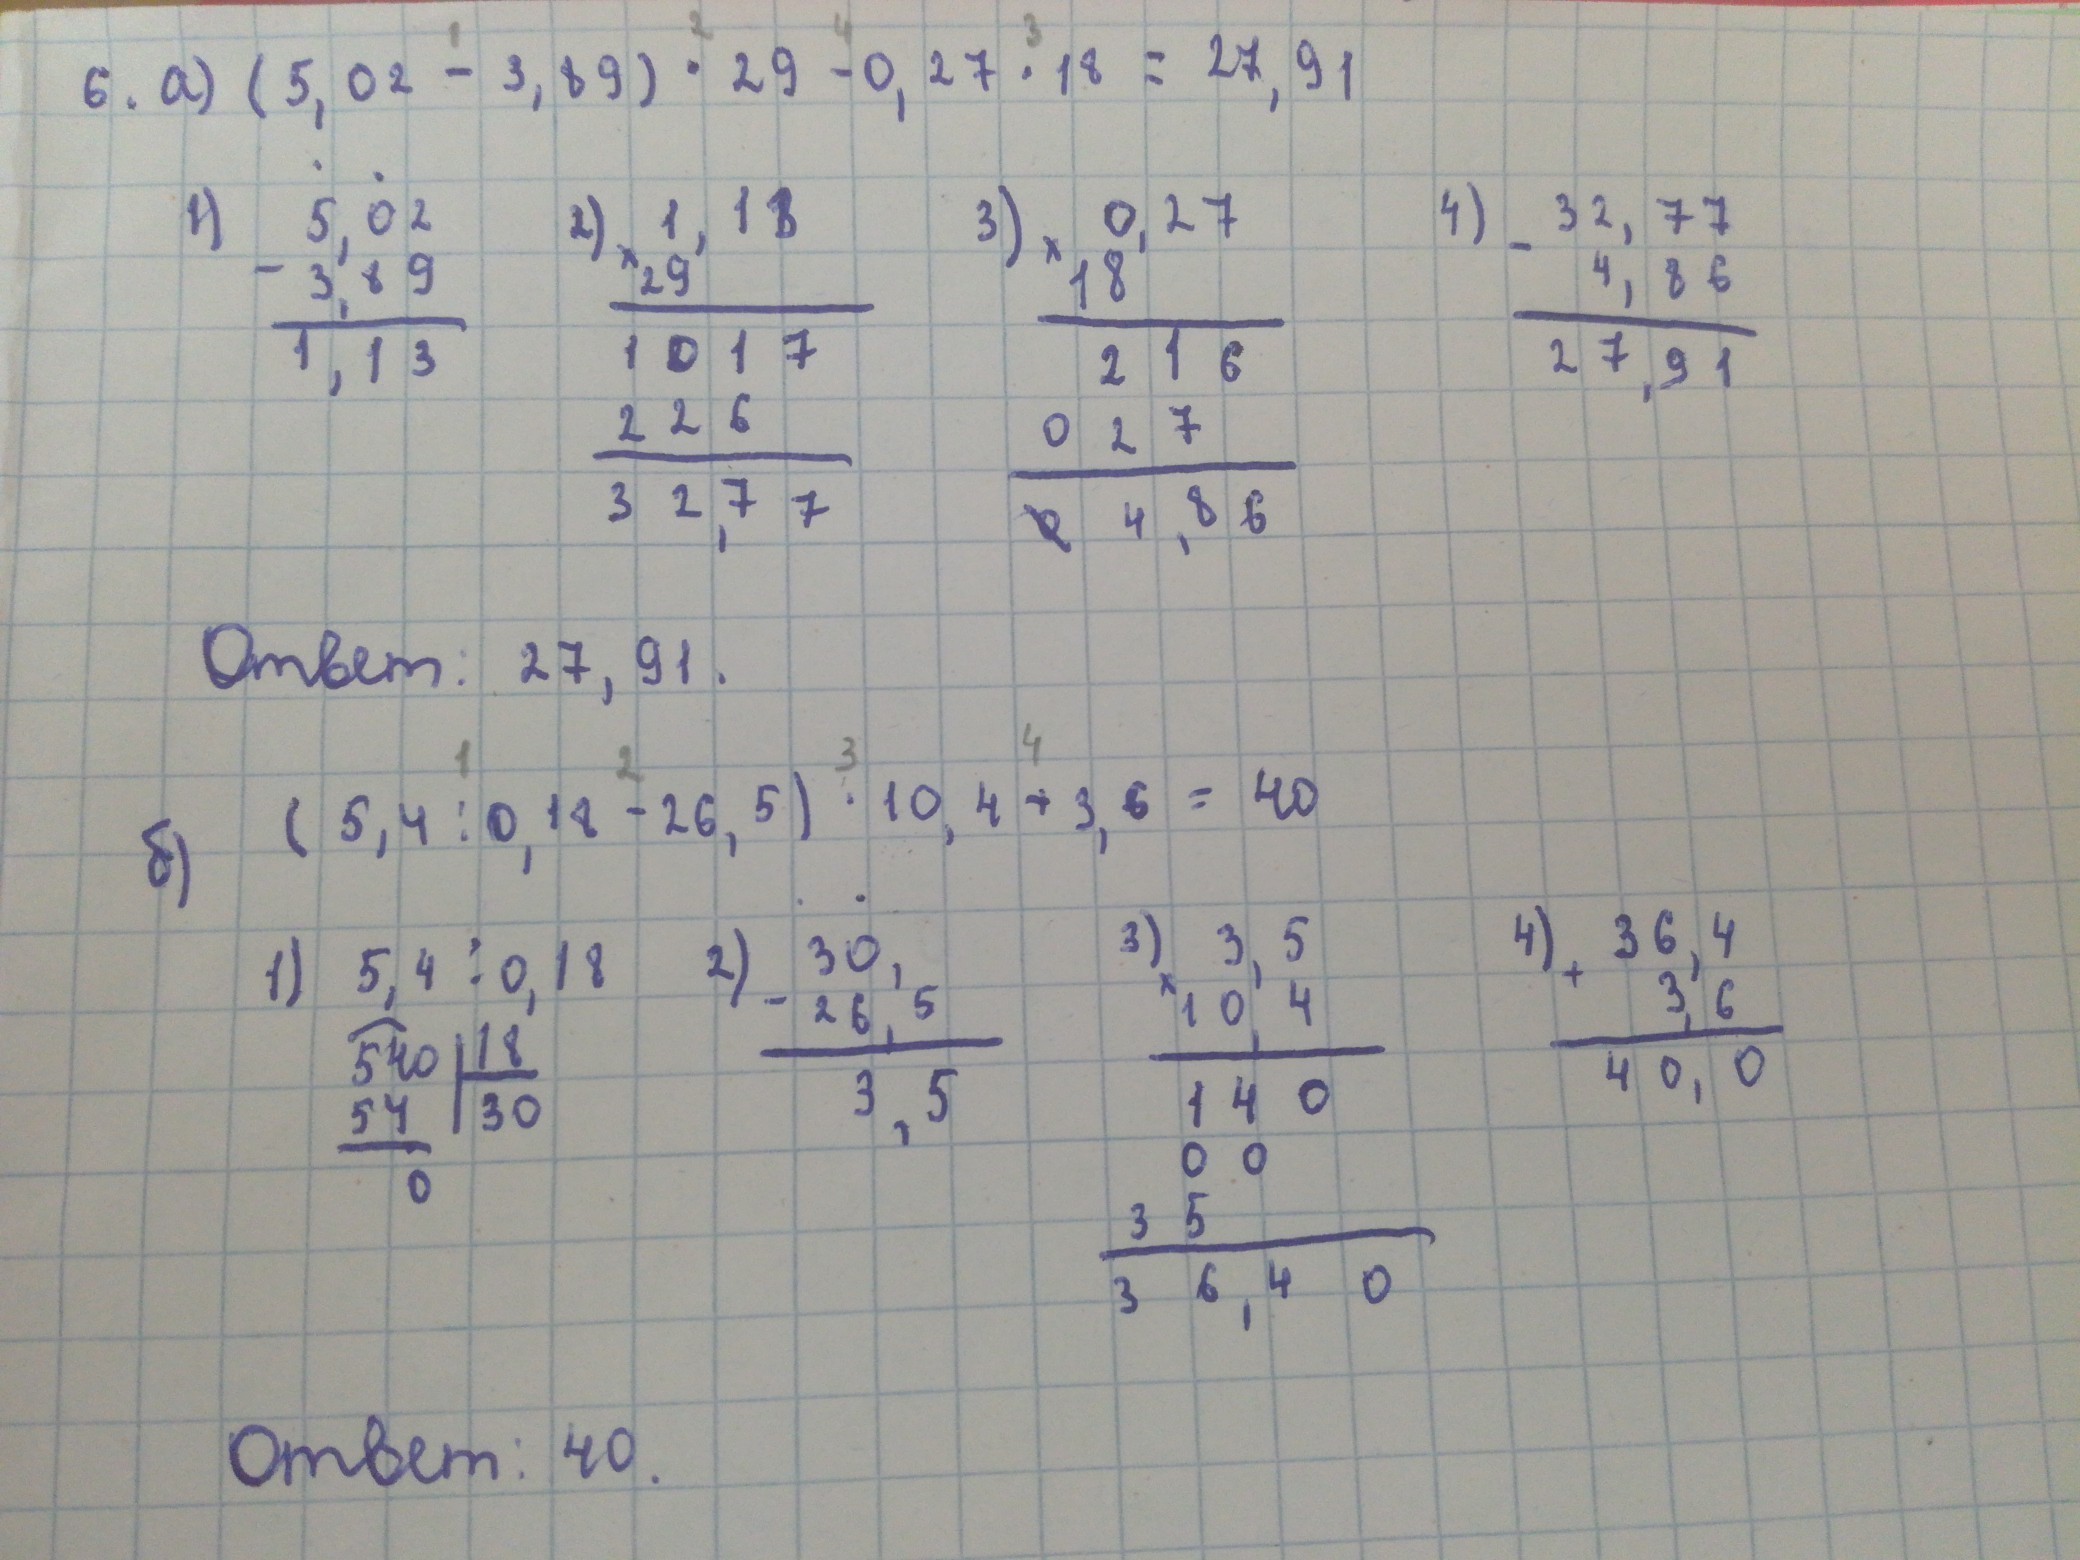 6. а) (5,02 - 3,89) · 29 - 0,27 · 18 = 27,91
1 2 4 3
1) 5,02 2) 1,13 3) 0,27 4) 32,77
- 3,89 × 29 × 18 - 4,86
1,13 1017 216 27,91
226 027
32,77 4,86
Ответ: 27,91.
1 2 3 4
б) (5,4 : 0,18 - 26,5) · 10,4 + 3,6 = 40
1) 5,4 : 0,18 2) 30, 3) 3,5 4) 36,4
540 18 - 26,5 × 10,4 + 3,6
54 30 3,5 140 40,0
0 00
35
36,40
Ответ: 40.